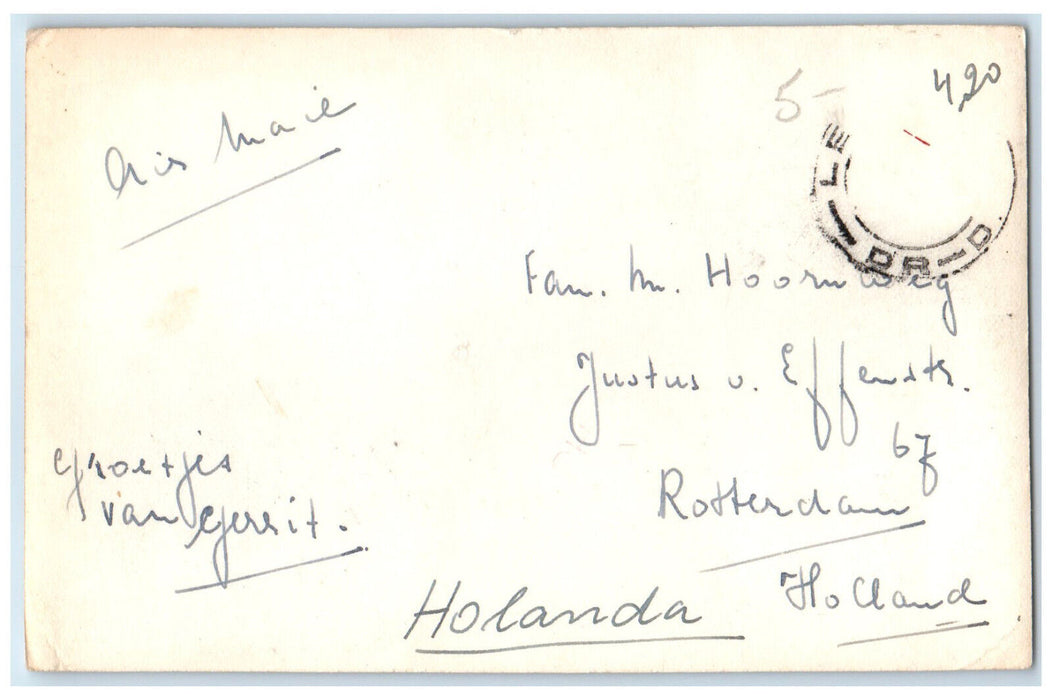 5-
4,20
Air Mail
LE
DR-D
Fam. M. Hoornweg
Justus v. Effenstr.
67
Groetjes
van Gerrit.
Rotterdam
Holland
Holanda